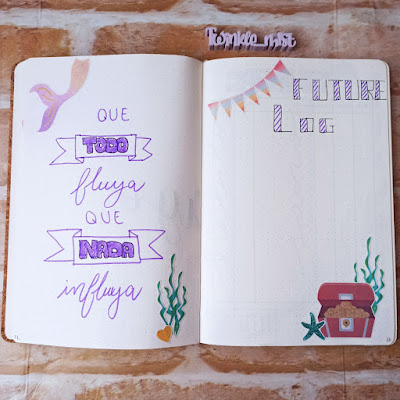 Twinkle_mist
QUE
TODO
fluya
QUE
NADA
influya
FUTURE
LOG